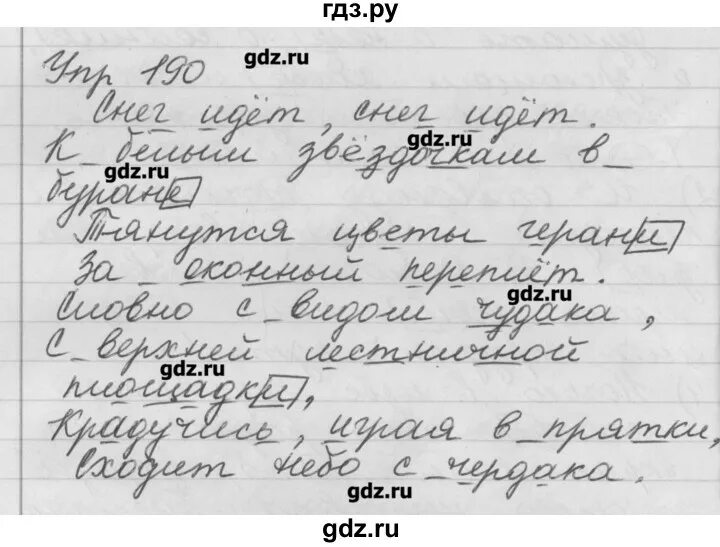 гдз.ру
Упр 190 gdz.ru
Снег идёт, снег идёт.
gdz.ru
К белым звёздочкам в
gdz.ru
буране
Тянутся цветы герани
За оконный переплёт.
gdz.ru
Словно с видом чудака,
С верхней лестничной
gdz.ru
площадки,
Крадучись, играя в прятки,
Сходит небо с чердака.
gdz.ru
gdz.ru